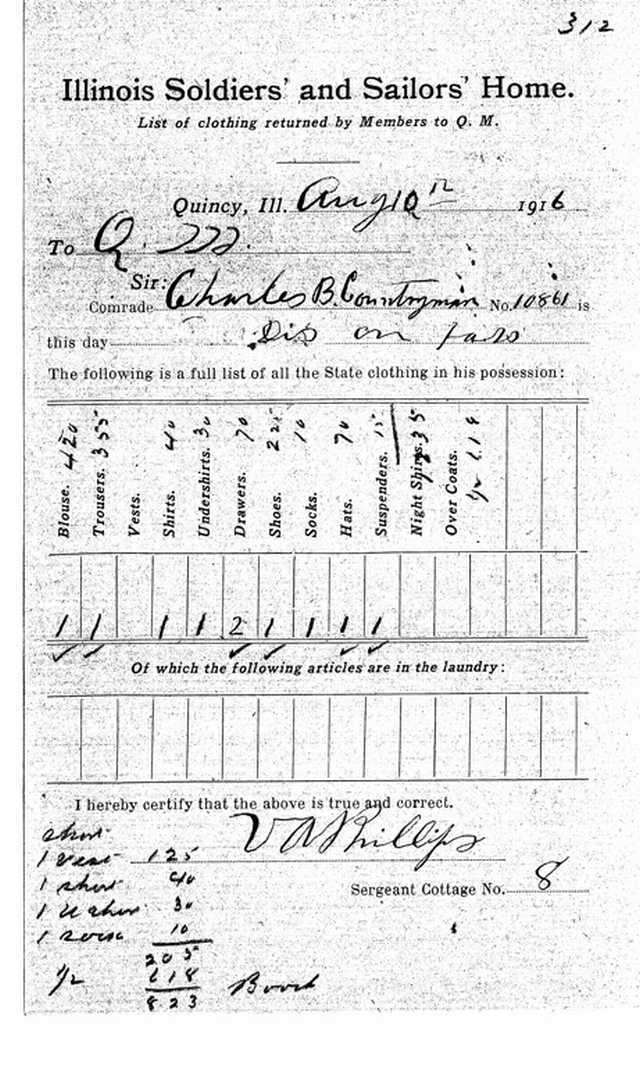 312
Illinois Soldiers' and Sailors' Home.
List of clothing returned by Members to Q. M.
Quincy, Ill. Aug 10 1916
To Q. M.
Sir:
Comrade Charles B. Countryman No. 10861 is
this day Dis on pass
The following is a full list of all the State clothing in his possession:
Blouse. 420
Trousers. 355
Vests.
Shirts. 40
Undershirts. 30
Drawers. 70
Shoes. 225
Socks. 10
Hats. 70
Suspenders. 15
Night Shirts. 35
Over Coats.
1/2 618
1 1 1 1 2 1 1 1 1
Of which the following articles are in the laundry:
I hereby certify that the above is true and correct.
V A Phillips
Sergeant Cottage No. 8
short
1 vest 125
1 shirt 40
1 U shirt 30
1 socks 10
205
1/2 618
823